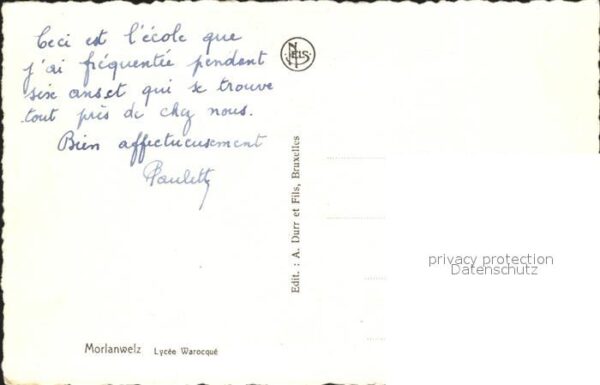 Ceci est l'école que
j'ai fréquentée pendant
six ans et qui se trouve
tout près de chez nous.
Bien affectueusement
Paulette
NELS
Edit. : A. Durr et Fils, Bruxelles
privacy protection
Datenschutz
Morlanwelz Lycée Warocqué